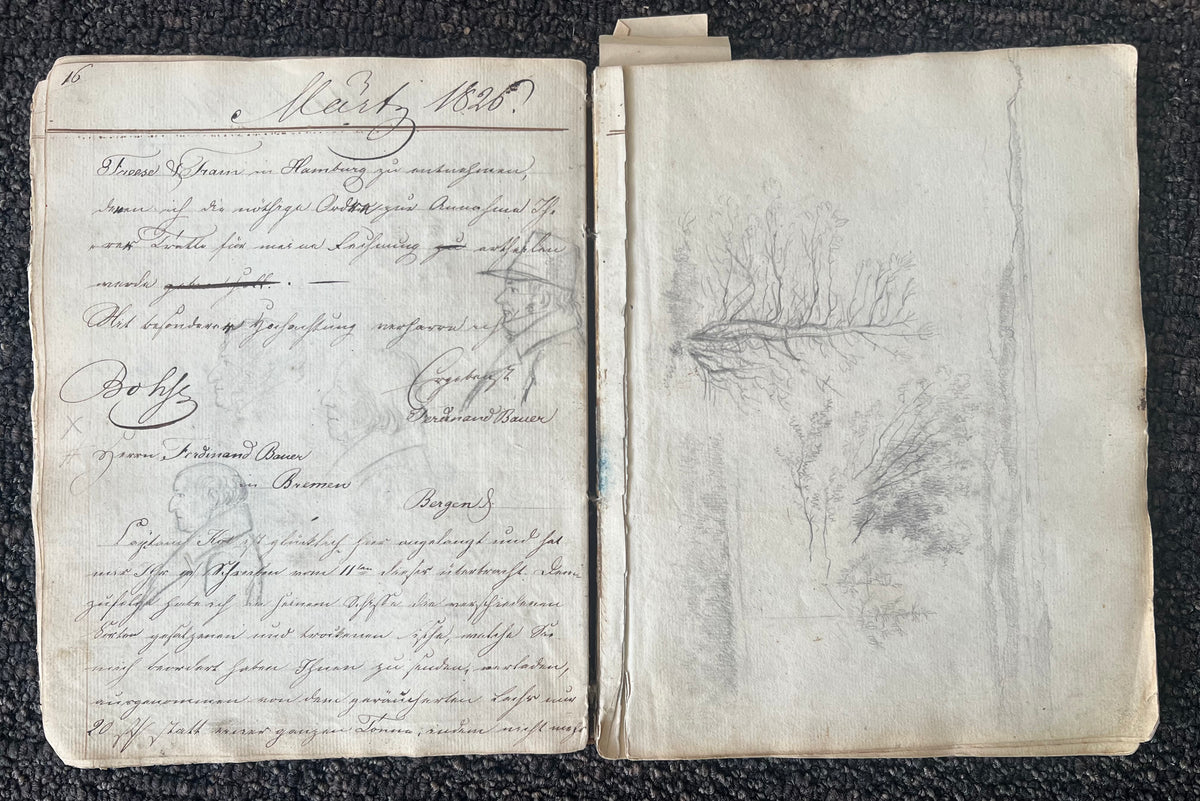 16
Märtz 1826.
Freese & Fram in Hamburg zu entnehmen,
denen ich die nöthige Ordre zur Annahme Ih-
rer Tratte für meine Rechnung zu ertheilen
werde
Mit besonderer Hochachtung verharre ich
Ergebenst
Ferdinand Bauer
Herrn Ferdinand Bauer
in Bremen
Bergen
Capitain ist glücklich hier angelangt und hat
mir Ihr Schreiben vom 11ten dieses überbracht. Dem
zufolge habe ich in seinem Schiffe die verschiedenen
Sorten gesaltzenen und trockenen Fische, welche Sie
mich beordert haben Ihnen zu senden, verladen,
ausgenommen von dem geräucherten Lachs nur
20 statt einer ganzen Tonne, indem nicht mehr